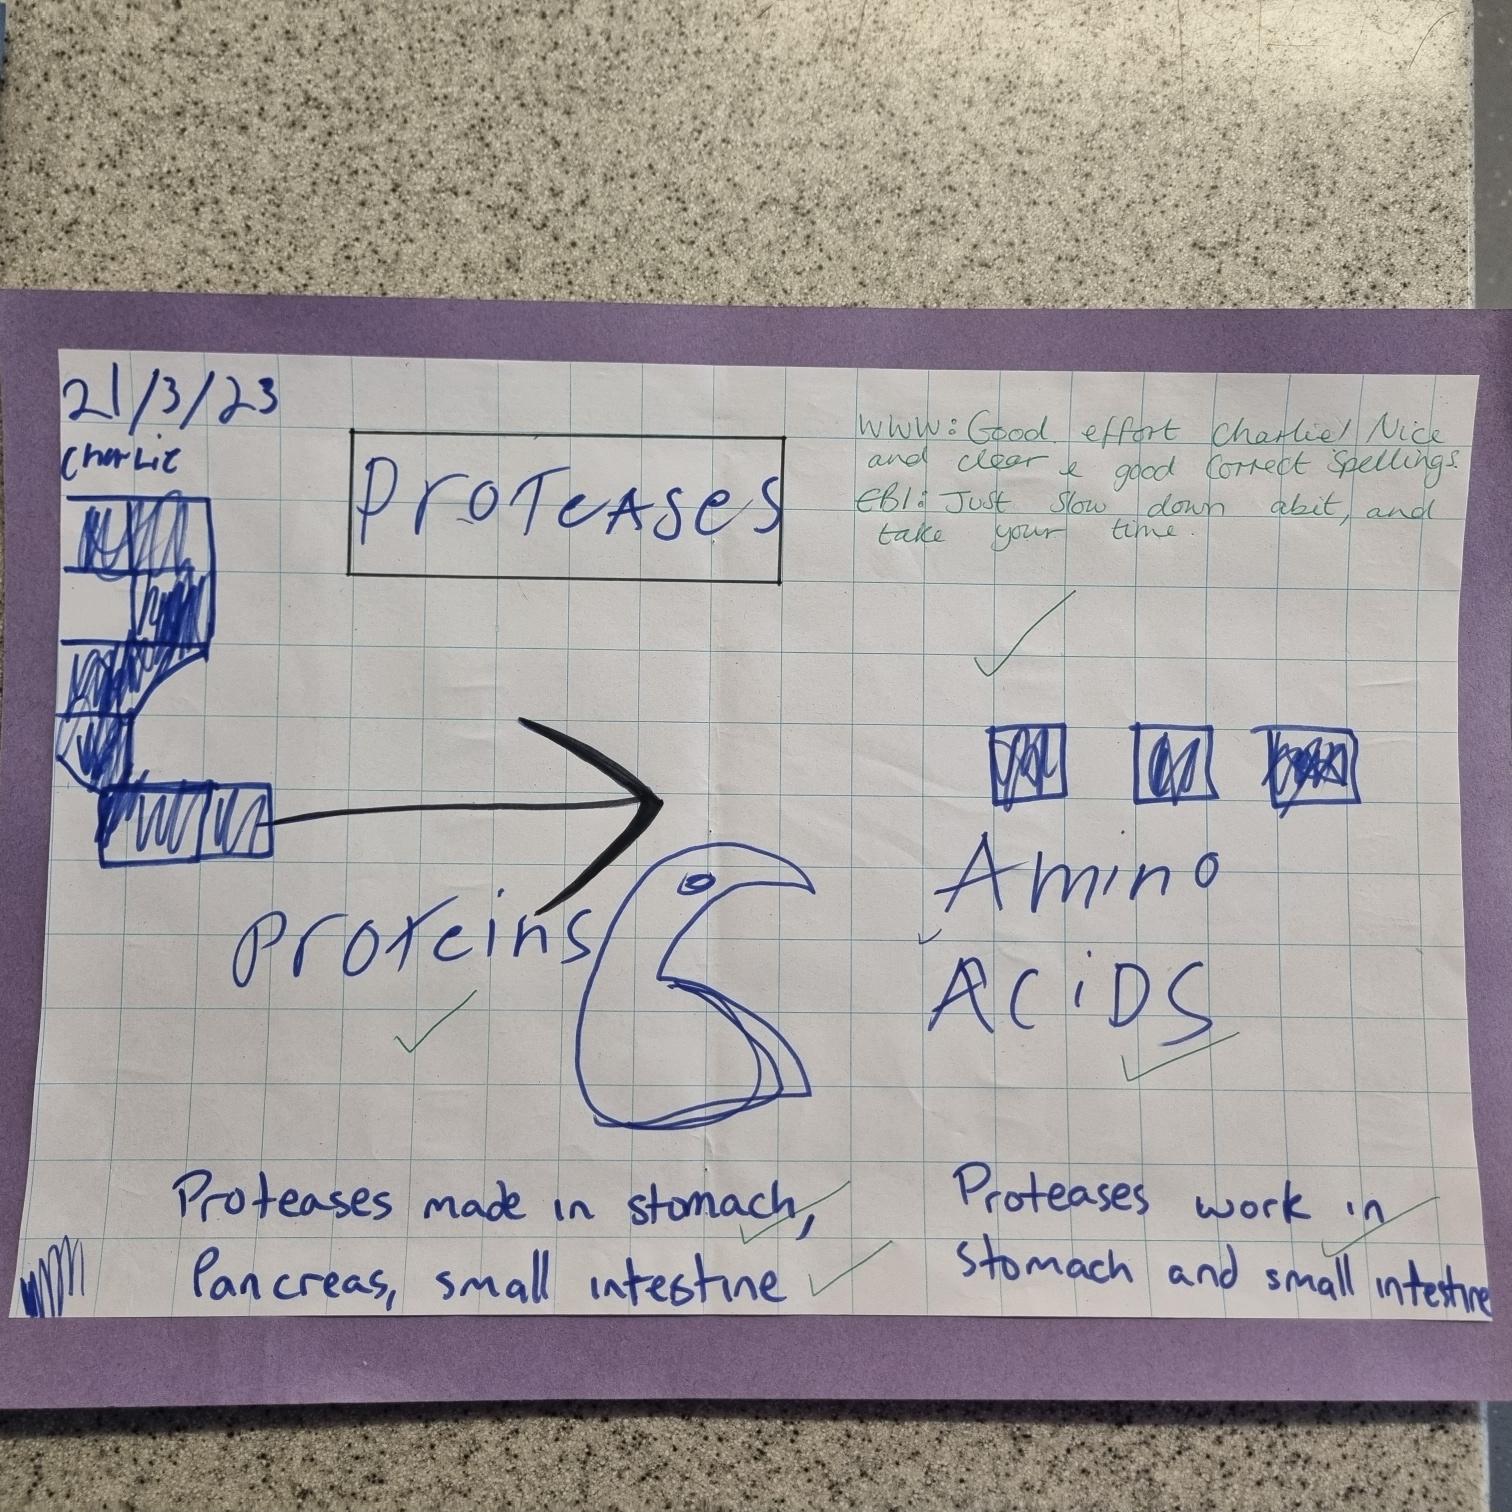 21/3/23
Charlie
Proteases
WWW: Good effort Charlie! Nice
and clear & good correct spellings.
EBI: Just slow down abit, and
take your time.
Proteins
Amino
Acids
Proteases made in stomach,
Pancreas, small intestine
Proteases work in
stomach and small intestine